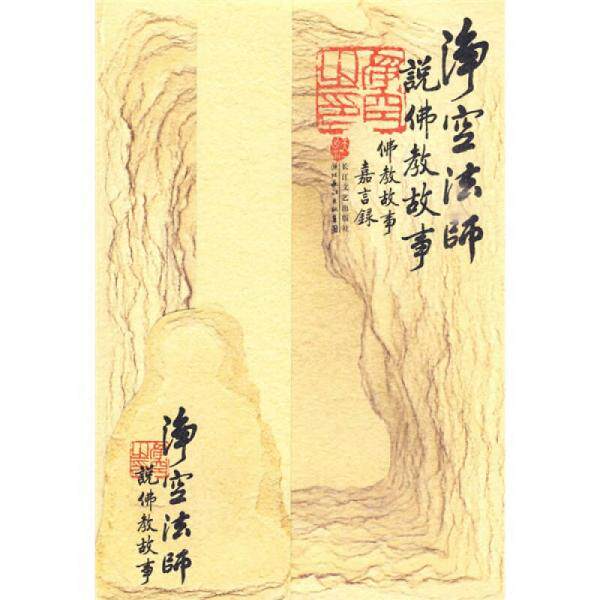 淨空法師
說佛教故事
佛教故事
嘉言錄
长江文艺出版社
淨空之印
淨空法師
說佛教故事
淨空之印